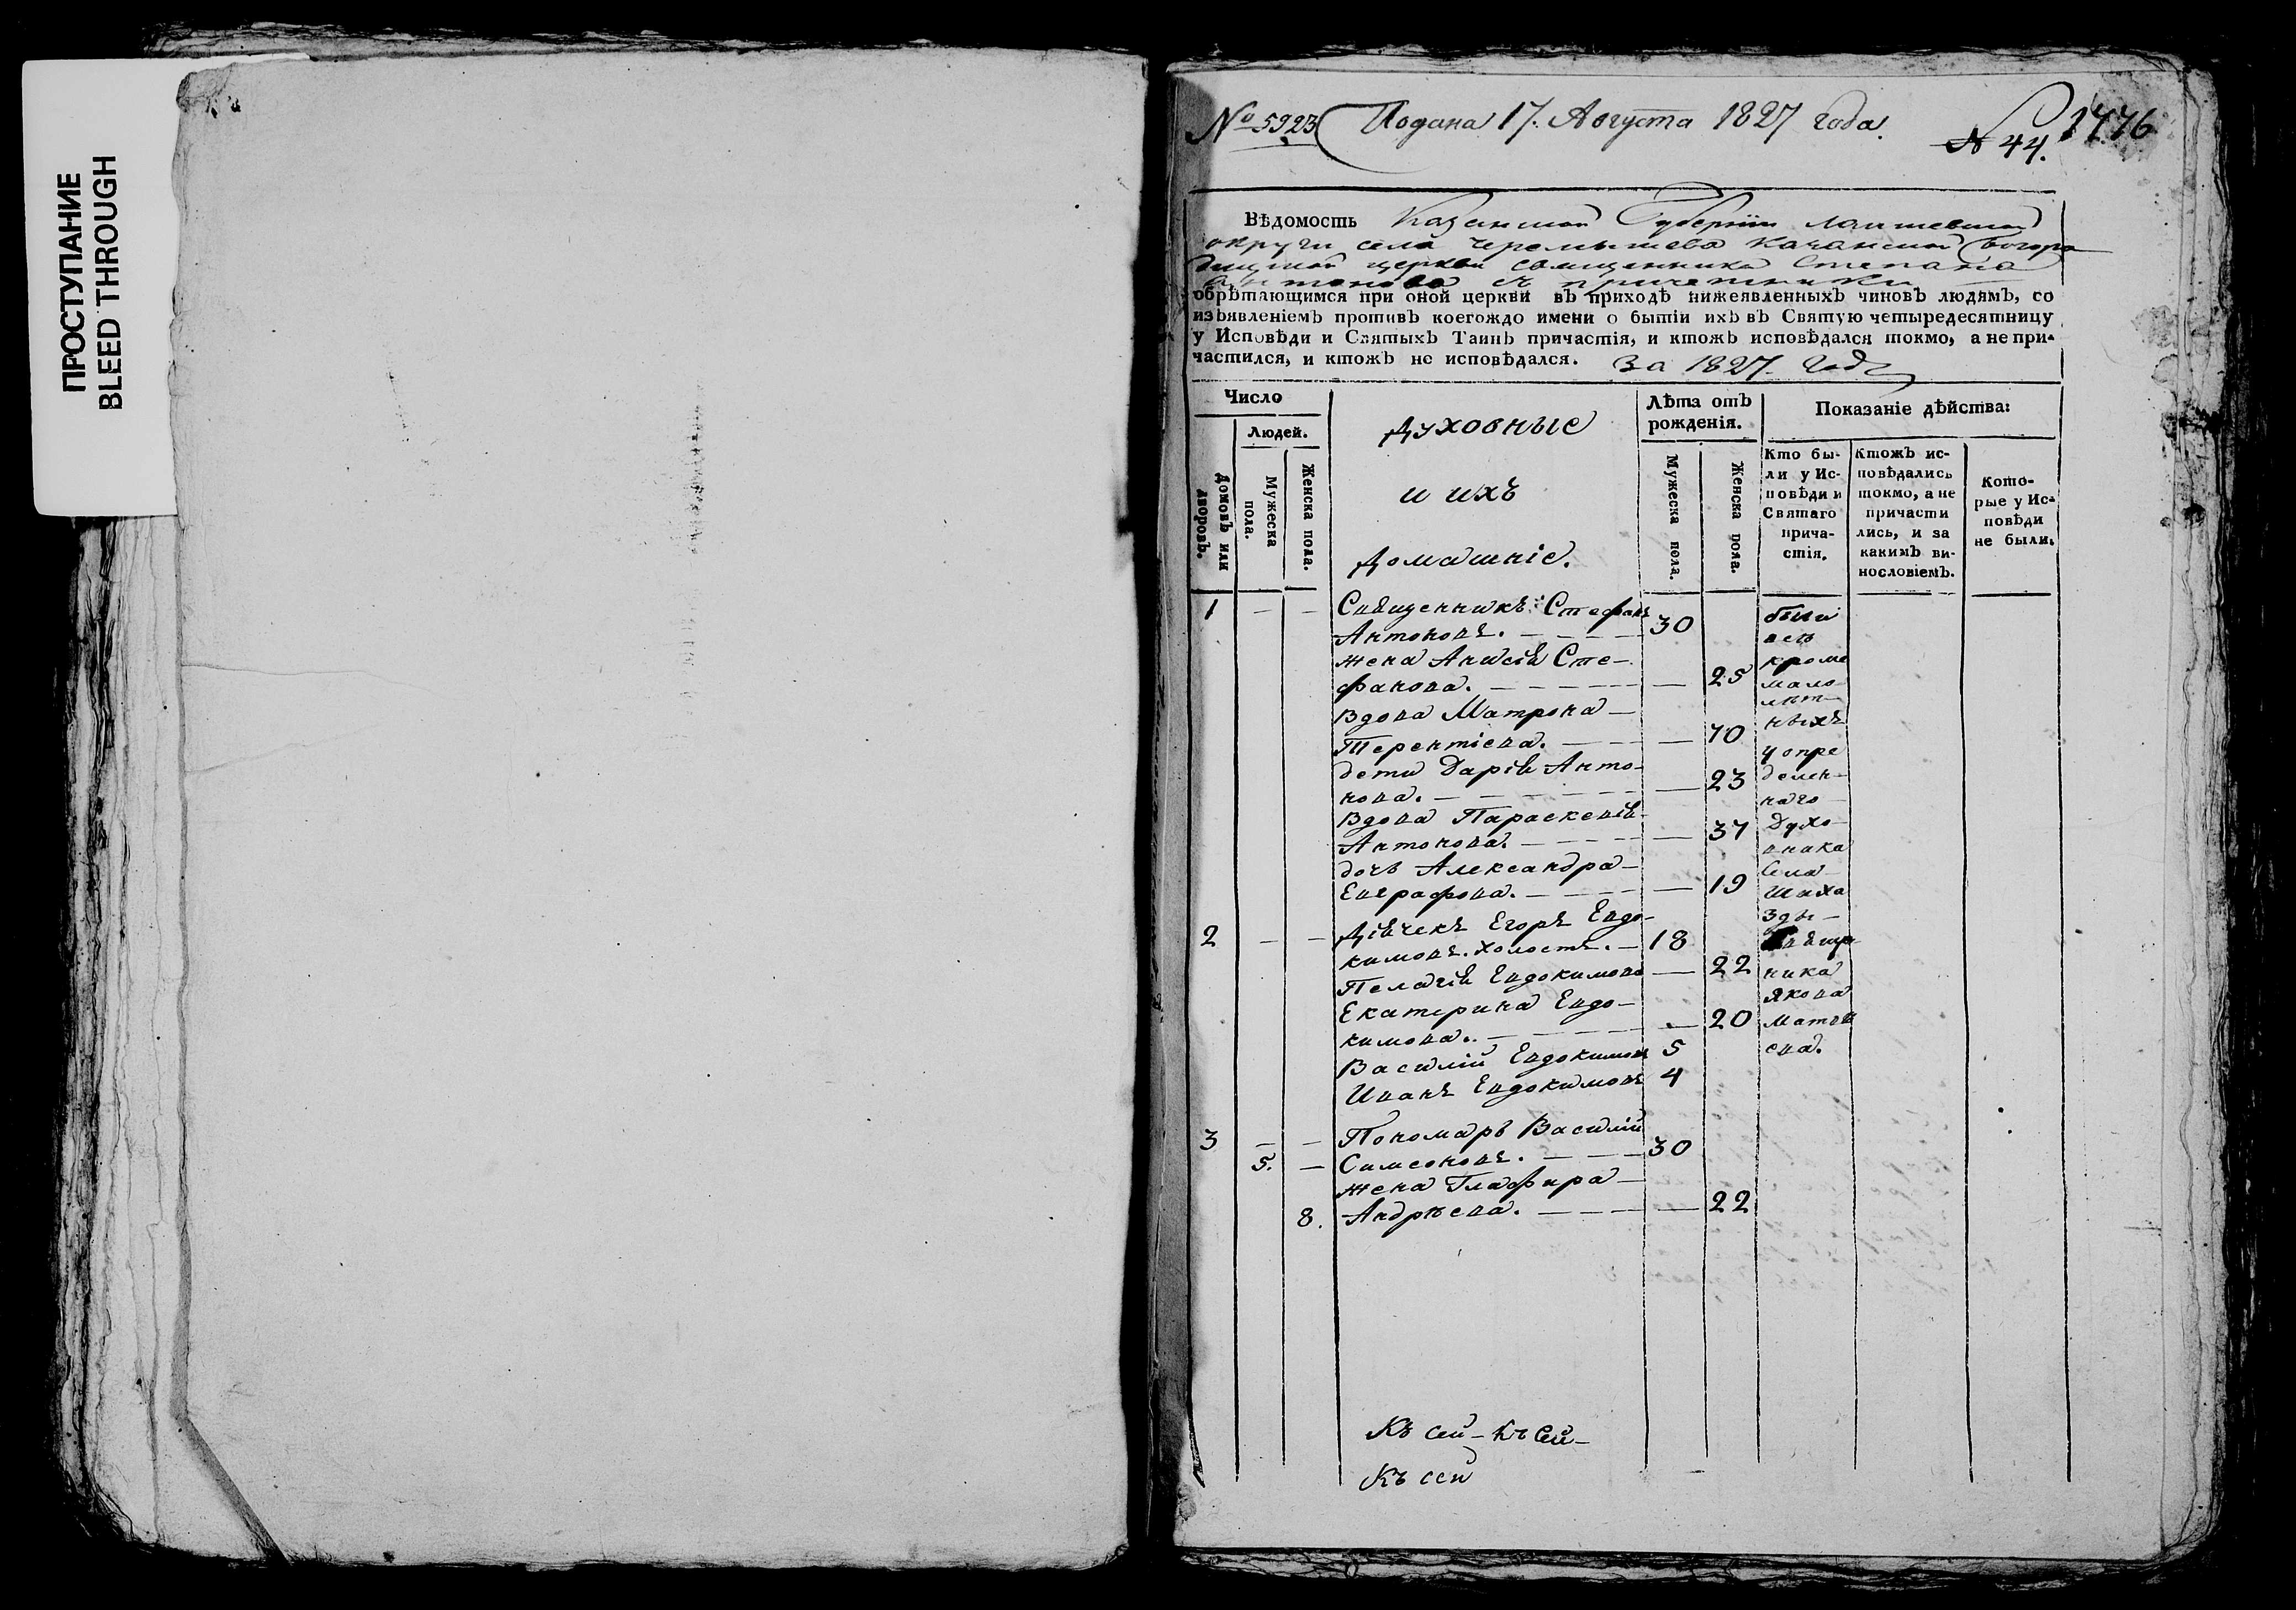 ПРОСТУПАНИЕ
BLEED THROUGH
№ 5923 Подана 17. Августа 1827 года.
N 44. 1776
Вѣдомость Казанской Губерніи Лаишевской
округи села Черемышева Казанской Богоро
дицкой церкви священника Степана
Антонова съ причетники
обрѣтающимся при оной церкви въ приходѣ нижеявленныхъ чиновъ людямъ, со
изъявленіемъ противъ коегождо имени о бытіи ихъ въ Святую четыредесятницу
у Исповѣди и Святыхъ Таинъ причастія, и ктожъ исповѣдался токмо, а не при-
частился, и ктожъ не исповѣдался. За 1827 годъ
Число
Людей.
Домовъ или дворовъ.
Мужеска пола.
Женска пола.
Духовные
и ихъ
Домашніе.
Лѣта отъ
рожденія.
Мужеска пола.
Женска пола.
Показаніе дѣйства:
Кто бы-
ли у Ис-
повѣди и
Святаго
прича-
стія.
Ктожъ ис-
повѣдались
токмо, а не
причасти
лись, и за
какимъ ви-
нословіемъ.
Кото-
рые у Ис-
повѣди
не были.
1 — — Священникъ Стефанъ
Антоновъ. 30
жена Анисія Сте-
фанова. — 25
Вдова Матрона
Терентіева. — 70
дети Дарія Анто-
нова. — 23
Вдова Параскевія
Антонова. — 37
дочь Александра
Евграфова. — 19
2 — — Діячекъ Егоръ Евдо-
кимовъ. холостъ. — 18
Пелагія Евдокимова — 22
Екатерина Евдо-
кимова. — 20
Василій Евдокимовъ 5
Иванъ Евдокимовъ 4
3 — — Пономарь Василій
5. — Симеоновъ. 30
жена Глафира
8. Андрѣева. — 22
были
всѣ
кроме
мало
лѣт-
ныхъ
у опре
делен-
наго
Духо-
вника
Села
Шиха
зды-
ника
Якова
Матвѣ
ева.
Къ сей - къ Сей -
Къ сей